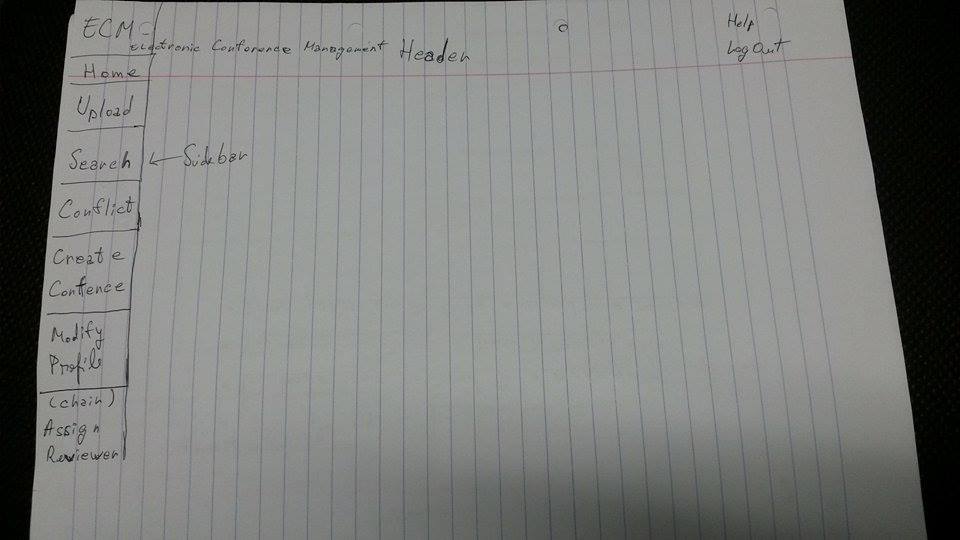 ECM-
Electronic Conference Management Header
Help
Log Out
Home
Upload
Search ← Sidebar
Conflict
Create
Confence
Modify
Profile
(chain)
Assign
Reviewer